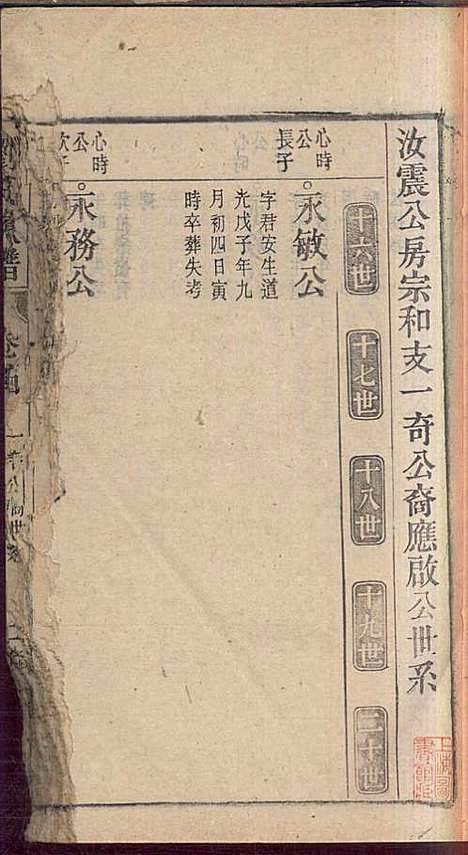 汝震公房宗和支一奇公裔應啟公世系
十六世
十七世
十八世
十九世
二十世
心時
公
長子
永敏公
字君安生道
光戊子年九
月初四日寅
時卒葬失考
心時
公
次子
永務公
譜